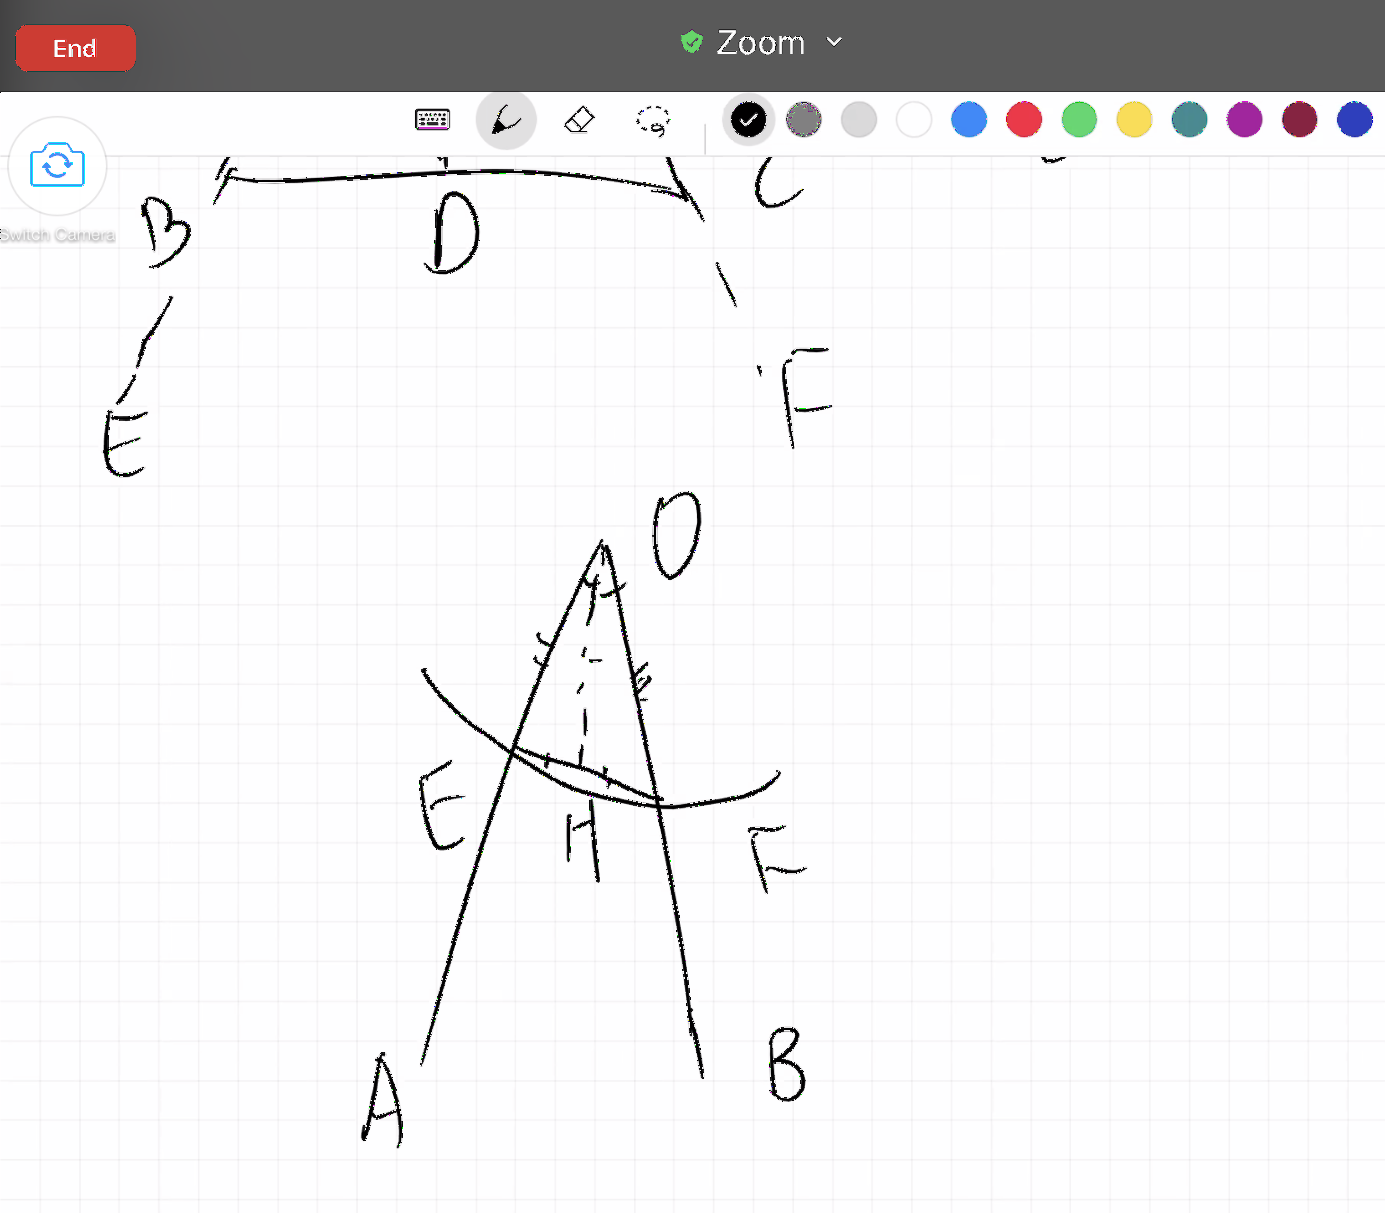 End
Zoom
Switch Camera
B
D
C
E
F
O
E
H
F
A
B